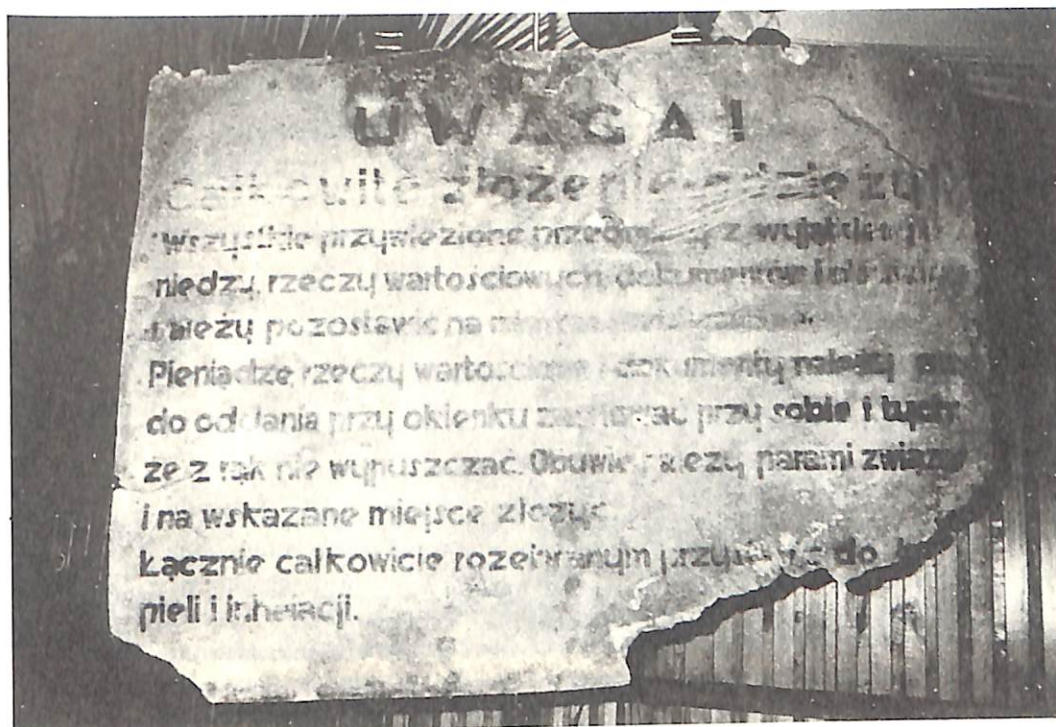 UWAGA!
Całkowite złożenie odzieży!
Wszystkie przywiezione przedmioty z wyjątkiem
niedzy, rzeczy wartościowych, dokumentów i
należy pozostawić na
Pieniądze, rzeczy wartościowe i dokumenty należy
do oddania przy okienku zachować przy sobie i tych
że z rąk nie wypuszczać. Obuwie należy parami związać
i na wskazane miejsce złożyć.
Łącznie całkowicie rozebranym przystąpić do
pieli i inhelacji.